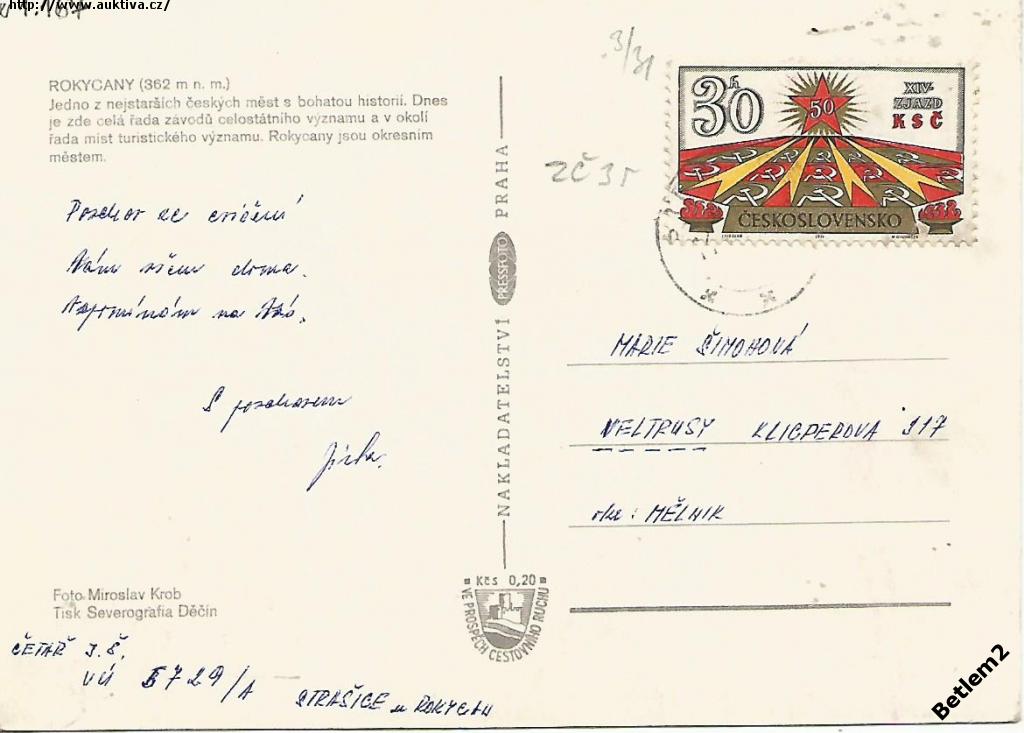 http://www.auktiva.cz/
ROKYCANY (362 m n. m.)
Jedno z nejstarších českých měst s bohatou historií. Dnes
je zde celá řada závodů celostátního významu a v okolí
řada míst turistického významu. Rokycany jsou okresním
městem.
Pozdrav ze cvičení
Vám všem doma.
Vzpomínám na Vás.
S pozdravem
Jirka.
Foto Miroslav Krob
Tisk Severografia Děčín
ČETAŘ J.Š.
VÚ 5729/A
STRAŠICE u ROKYCAN
NAKLADATELSTVÍ PRESSFOTO PRAHA
Kčs 0,20
VE PROSPĚCH CESTOVNÍHO RUCHU
3/31
ZČ 35
30 h
50
XIV.
ZJAZD
KSČ
ČESKOSLOVENSKO
MARIE ŠIMONOVÁ
VELTRUSY KLICPEROVA 317
okr: MĚLNIK
Betlem2